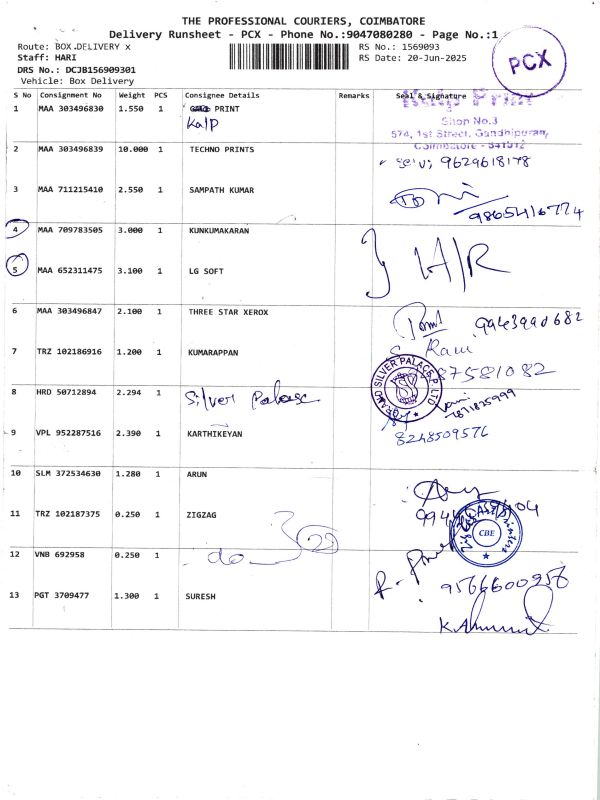 THE PROFESSIONAL COURIERS, COIMBATORE
Delivery Runsheet - PCX - Phone No.:9047080280 - Page No.:1
Route: BOX DELIVERY x
RS No.: 1569093
Staff: HARI
RS Date: 20-Jun-2025
DRS No.: DCJB156909301
Vehicle: Box Delivery
PCX
S No Consignment No Weight PCS Consignee Details Remarks Seal & Signature
1 MAA 303496830 1.550 1 PRINT
Kalp
Kalp Print
Shop No.3
574, 1st Street, Gandhipuram,
Coimbatore - 641012
2 MAA 303496839 10.000 1 TECHNO PRINTS
selvi 9629618178
3 MAA 711215410 2.550 1 SAMPATH KUMAR
9865416774
4 MAA 709783505 3.000 1 KUNKUMAKARAN
5 MAA 652311475 3.100 1 LG SOFT
H/R
6 MAA 303496847 2.100 1 THREE STAR XEROX
7 TRZ 102186916 1.200 1 KUMARAPPAN
8 HRD 50712894 2.294 1 Silver Palace
GRAND SILVER PALACE P LTD
9 VPL 952287516 2.390 1 KARTHIKEYAN
8248509576
10 SLM 372534630 1.280 1 ARUN
11 TRZ 102187375 0.250 1 ZIGZAG
CBE
12 VNB 692958 0.250 1 - do -
9566600956
13 PGT 3709477 1.300 1 SURESH